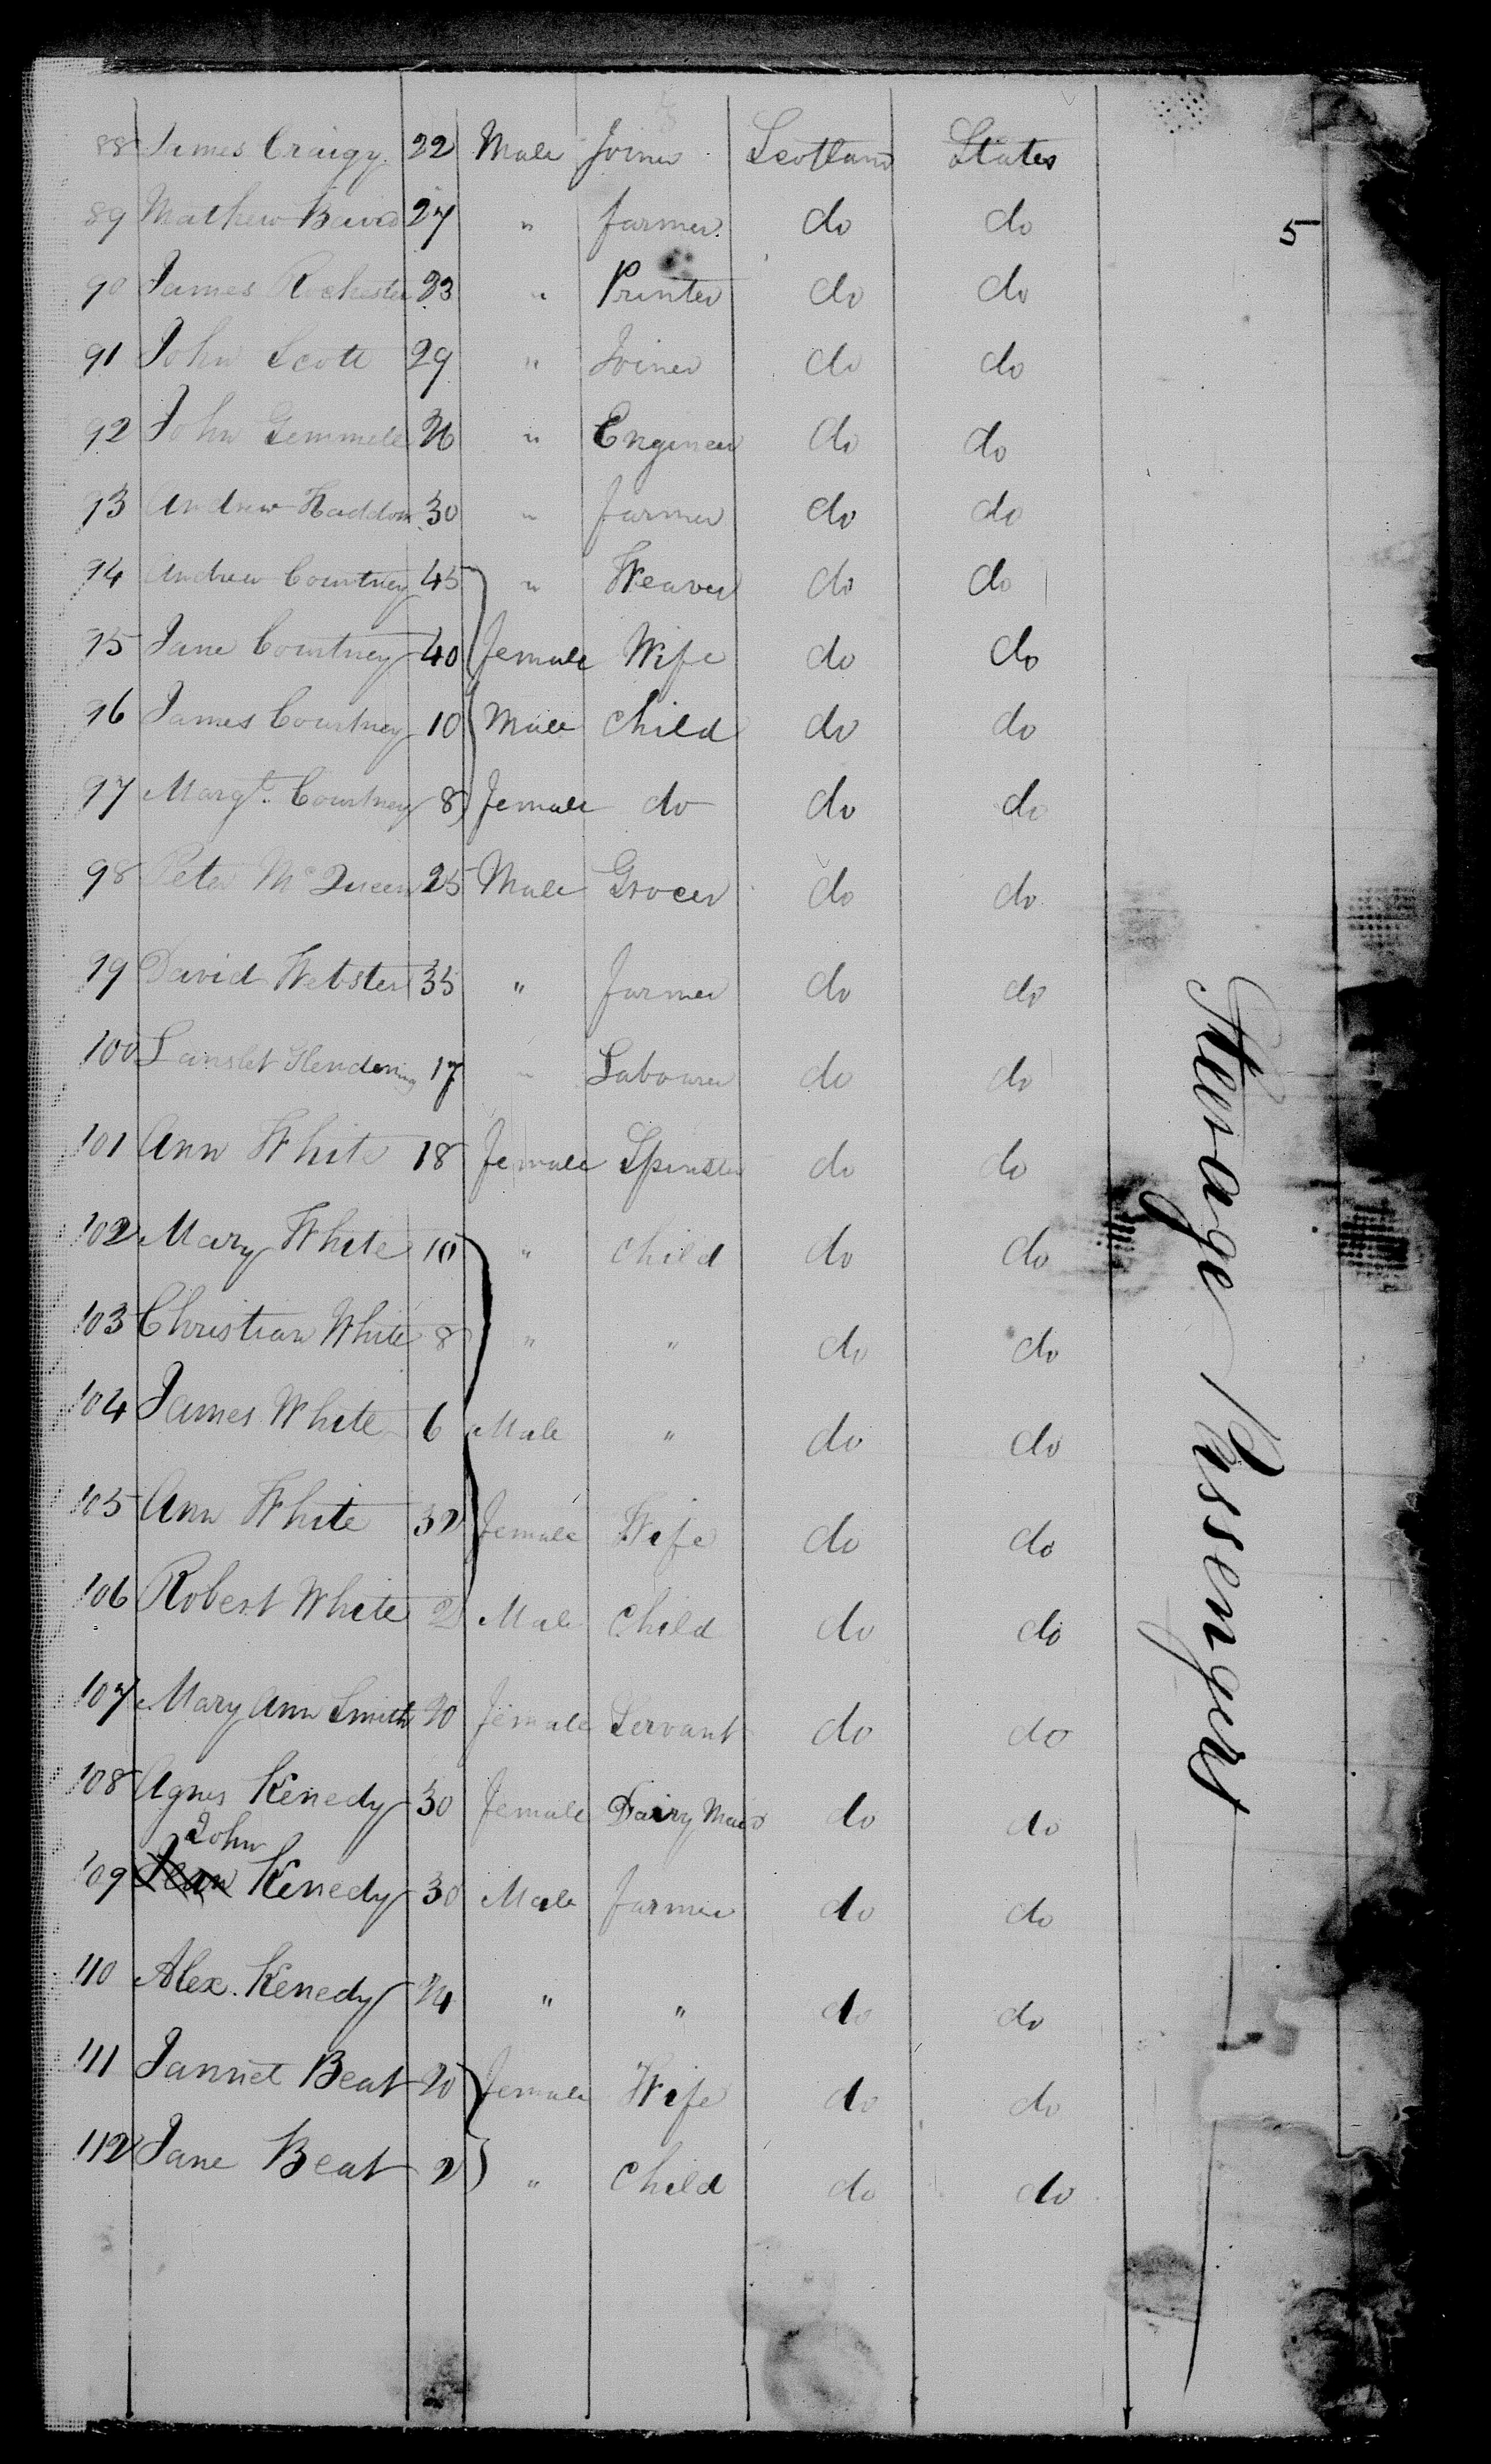 88 James Craigy 22 Male Joiner Scotland States
89 Mathew Baird 27 " farmer do do 5
90 James Rochester 23 " Printer do do
91 John Scott 29 " Joiner do do
92 John Gemmell 26 " Engineer do do
93 Andrew Haddow 30 " farmer do do
94 Andrew Courtney 45 " Weaver do do
95 Jane Courtney 40 female Wife do do
96 James Courtney 10 Male Child do do
97 Margt. Courtney 8 female do do do
98 Peter McQueen 25 Male Grocer do do
99 David Webster 35 " farmer do do
100 Lanslet Glendening 17 " Labourer do do
101 Ann White 18 female Spinster do do
102 Mary White 10 " Child do do
103 Christian White 8 " " do do
104 James White 6 Male " do do
105 Ann White 32 female Wife do do
106 Robert White 2 Male Child do do
107 Mary Ann Smith 20 female Servant do do
108 Agnes Kenedy 30 female Dairy Maid do do
John
109 Kenedy 30 Male farmer do do
110 Alex. Kenedy 24 " " do do
111 Jannet Beat 20 female Wife do do
112 Jane Beat 2 " Child do do
Steerage Passengers